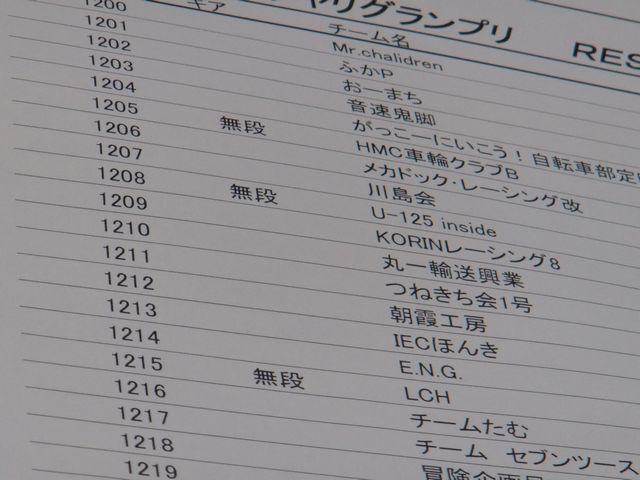 ャリグランプリ RES
ギア チーム名
1200 Mr.chalidren
1201 ふかP
1202 おーまち
1203 音速鬼脚
1204 がっこーにいこう！自転車部定
1205 無段 HMC車輪クラブB
1206 メカドック・レーシング改
1207 川島会
1208 無段 U-125 inside
1209 KORINレーシング8
1210 丸一輸送興業
1211 つねきち会1号
1212 朝霞工房
1213 IECほんき
1214 E.N.G.
1215 無段 LCH
1216 チームたむ
1217 チーム セブンツース
1218 冒険企画
1219